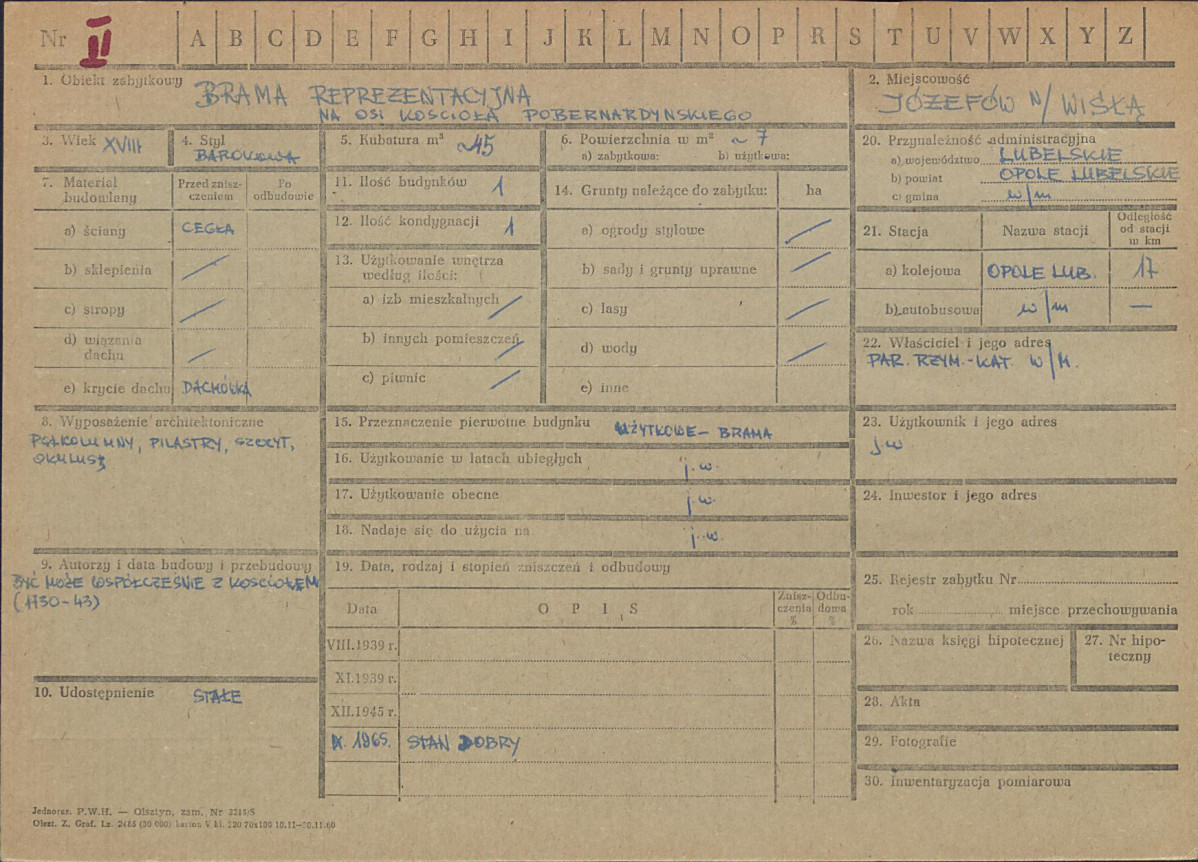 Nr II A B C D E F G H I J K L M N O P R S T U V W X Y Z
1. Obiekt zabytkowy BRAMA REPREZENTACYJNA
NA OSI KOSCIOŁA POBERNARDYNSKIEGO
2. Miejscowość
JÓZEFÓW N/WISŁĄ
3. Wiek XVIII
4. Styl
BAROKOWA
5. Kubatura m³ ~45
6. Powierzchnia w m² ~ 7
a) zabytkowa: b) użytkowa:
7. Materiał
budowlany
Przed znisz-
czeniem
Po
odbudowie
a) ściany CEGŁA
b) sklepienia
c) stropy
d) wiązania
dachu
e) krycie dachu DACHÓWKA
8. Wyposażenie architektoniczne
PÓŁKOLUMNY, PILASTRY, SZCZYT,
OKULUSY
9. Autorzy i data budowy i przebudowy
BYĆ MOŻE WSPÓŁCZEŚNIE Z KOSCIOŁEM
(1730-43)
10. Udostępnienie STAŁE
11. Ilość budynków 1
12. Ilość kondygnacji 1
13. Użytkowanie wnętrza
według ilości:
a) izb mieszkalnych
b) innych pomieszczeń
c) piwnic
14. Grunty należące do zabytku: ha
a) ogrody stylowe
b) sady i grunty uprawne
c) lasy
d) wody
e) inne
15. Przeznaczenie pierwotne budynku UŻYTKOWE - BRAMA
16. Użytkowanie w latach ubiegłych j.w.
17. Użytkowanie obecne j.w.
18. Nadaje się do użycia na j.w.
19. Data, rodzaj i stopień zniszczeń i odbudowy
Data OPIS
Znisz-
czenia
%
Odbu-
dowa
%
VIII.1939 r.
XI.1939 r.
XII.1945 r.
IX. 1965. STAN DOBRY
20. Przynależność administracyjna
a) województwo LUBELSKIE
b) powiat OPOLE LUBELSKIE
c) gmina w/m
21. Stacja Nazwa stacji
Odległość
od stacji
w km
a) kolejowa OPOLE LUB. 17
b) autobusowa w/m —
22. Właściciel i jego adres
PAR. RZYM.-KAT. W/M.
23. Użytkownik i jego adres
jw
24. Inwestor i jego adres
25. Rejestr zabytku Nr
rok miejsce przechowywania
26. Nazwa księgi hipotecznej
27. Nr hipo-
teczny
28. Akta
29. Fotografie
30. Inwentaryzacja pomiarowa
Jednorer. P.W.H. — Olsztyn, zam. Nr 3215/S
Olszt. Z. Graf. Lz. 2485 (30 000) karton V kl. 220 70x100 10.11-30.11.60